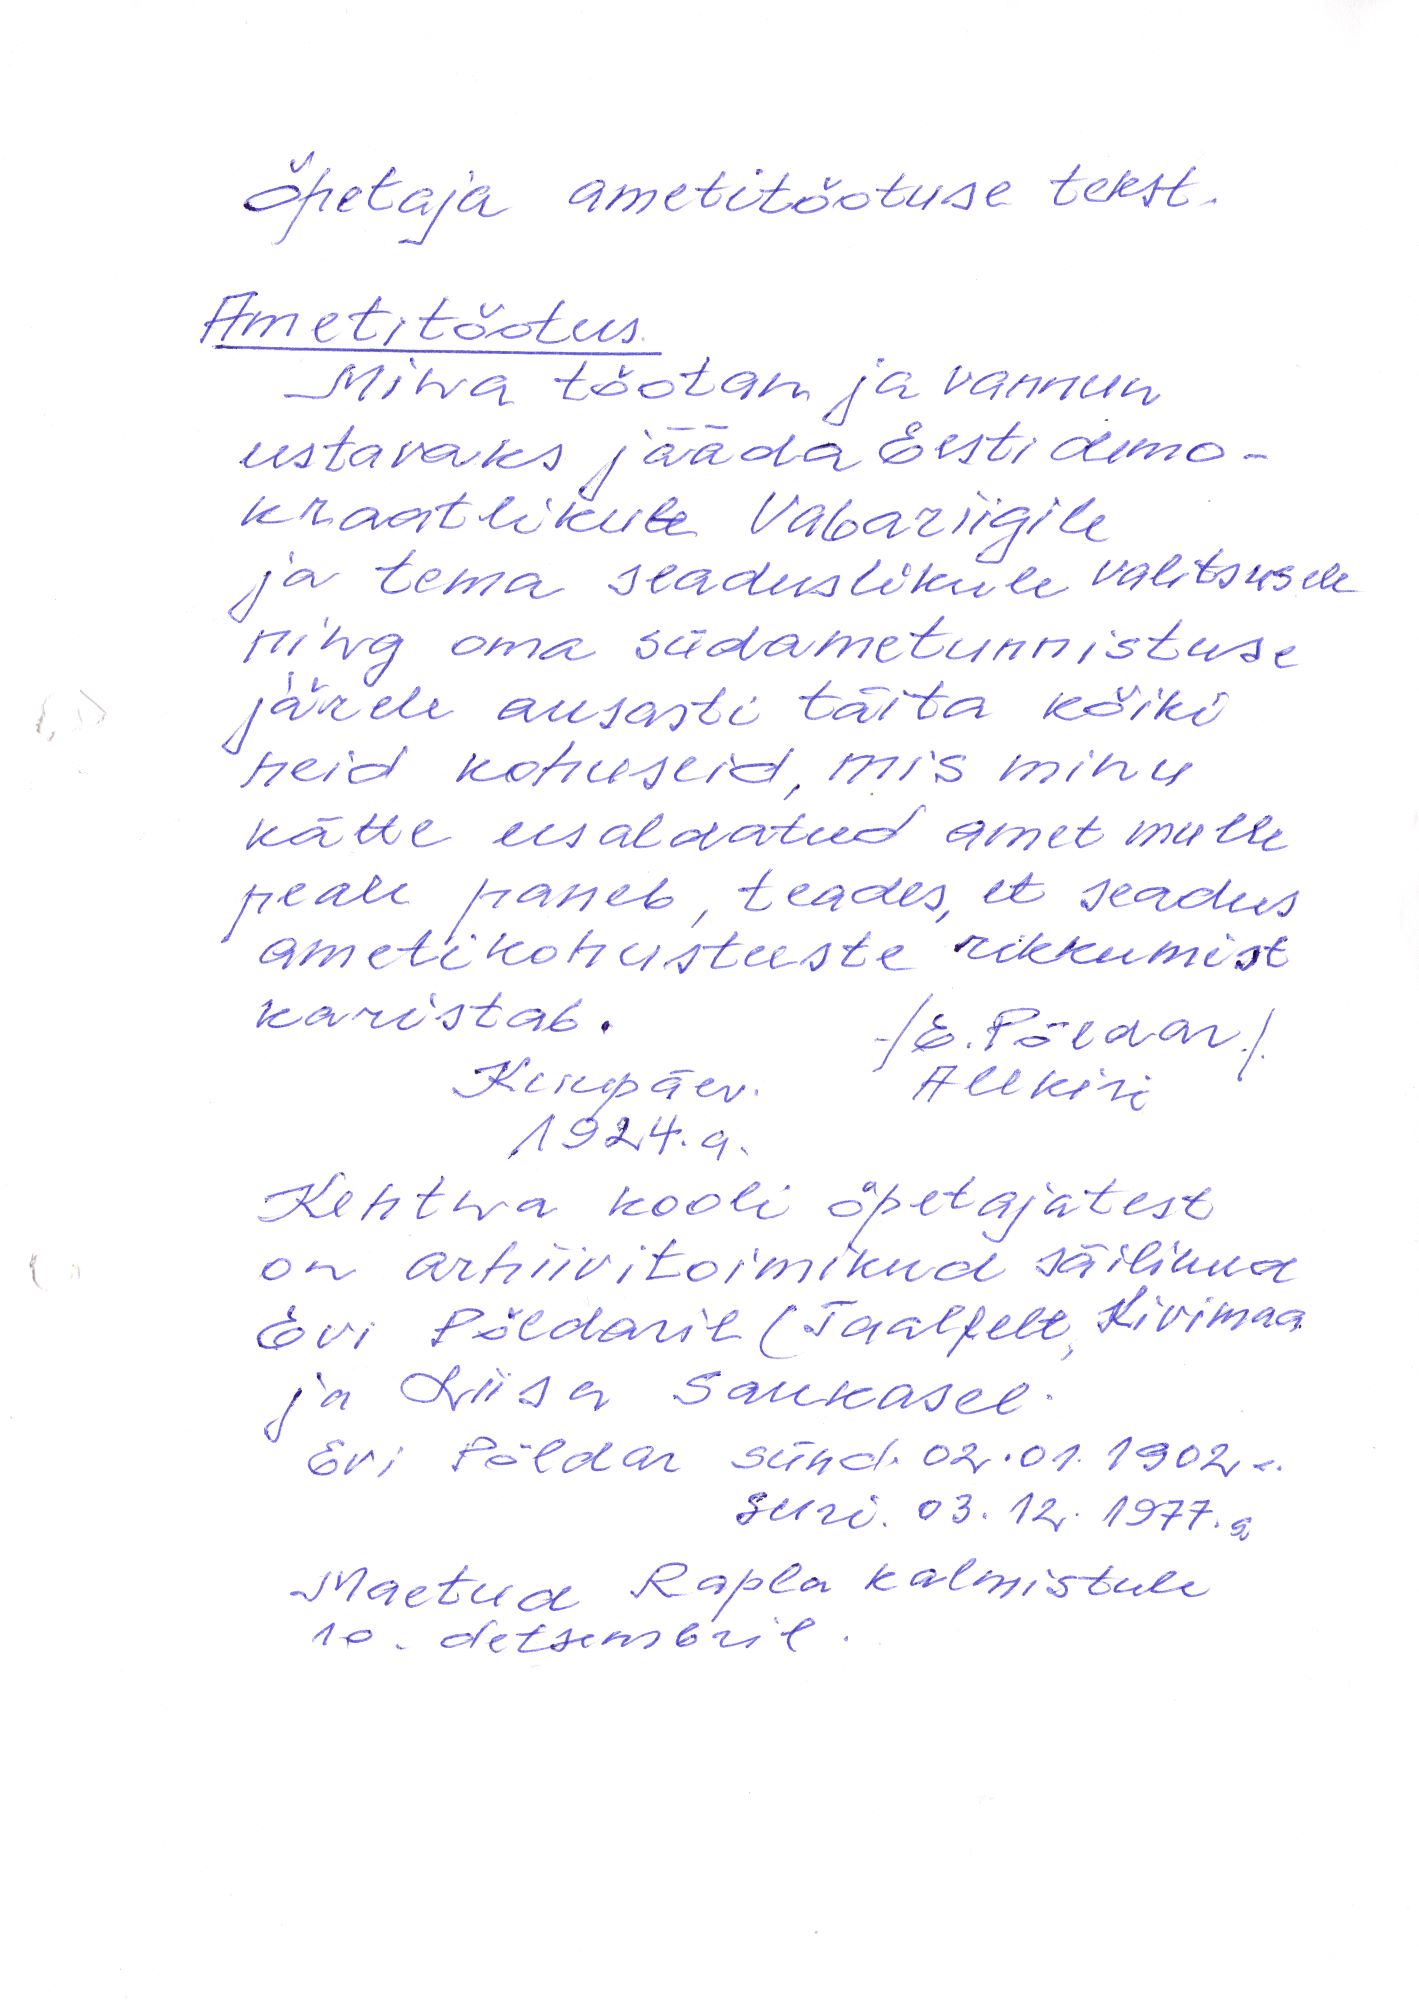 Õpetaja ametitõotuse tekst.
Ametitõotus.
Mina tõotan ja vannun
ustavaks jääda Eesti demo-
kraatlikule Vabariigile
ja tema seaduslikule valitsusele
ning oma südametunnistuse
järele ausasti täita kõiki
neid kohuseid, mis minu
kätte usaldatud amet mulle
peale paneb, teades, et seadus
ametikohustuste rikkumist
karistab.
/E. Põldar/.
Kuupäev. Allkiri
1924. a.
Kehtna kooli õpetajatest
on arhiivitoimikud säilinud
Evi Põldaril (Taalfelt, Kivimaa
ja Liisa Saukasel.
Evi Põldar sünd. 02.01.1902.
suri. 03.12.1977.a
Maetud Rapla kalmistule
10. detsembril.